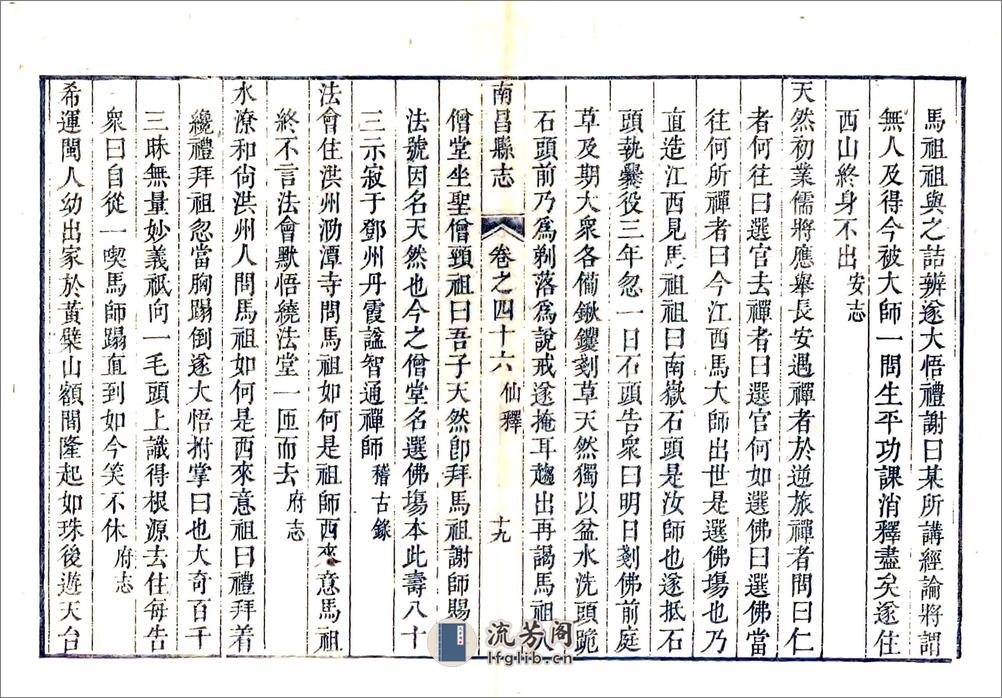 馬祖祖與之詰辨遂大悟禮謝曰某所講經論將謂
無人及得今被大師一問生平功課消釋盡矣遂住
西山終身不出安志
天然初業儒將應舉長安遇禪者於逆旅禪者問曰仁
者何往曰選官去禪者曰選官何如選佛曰選佛當
往何所禪者曰今江西馬大師出世是選佛場也乃
直造江西見馬祖祖曰南嶽石頭是汝師也遂抵石
頭執爨役三年忽一日石頭告衆曰明日剗佛前庭
草及期大衆各備鍬钁剗草天然獨以盆水洗頭跪
石頭前乃爲剃落爲說戒遂掩耳趨出再謁馬祖入
南昌縣志 卷之四十六 仙釋 十九
僧堂坐聖僧頸祖曰吾子天然卽拜馬祖謝師賜
法號因名天然也今之僧堂名選佛塲本此壽八十
三示寂于鄧州丹霞諡智通禪師稽古錄
法會住洪州泐潭寺問馬祖如何是祖師西來意馬祖
終不言法會默悟繞法堂一匝而去府志
水潦和尙洪州人問馬祖如何是西來意祖曰禮拜着
纔禮拜祖忽當胸蹋倒遂大悟拊掌曰也大奇百千
三昧無量妙義祇向一毛頭上識得根源去住每告
衆曰自從一喫馬師蹋直到如今笑不休府志
希運閩人幼出家於黃檗山額間隆起如珠後遊天台
流芳阁
lfglib.cn